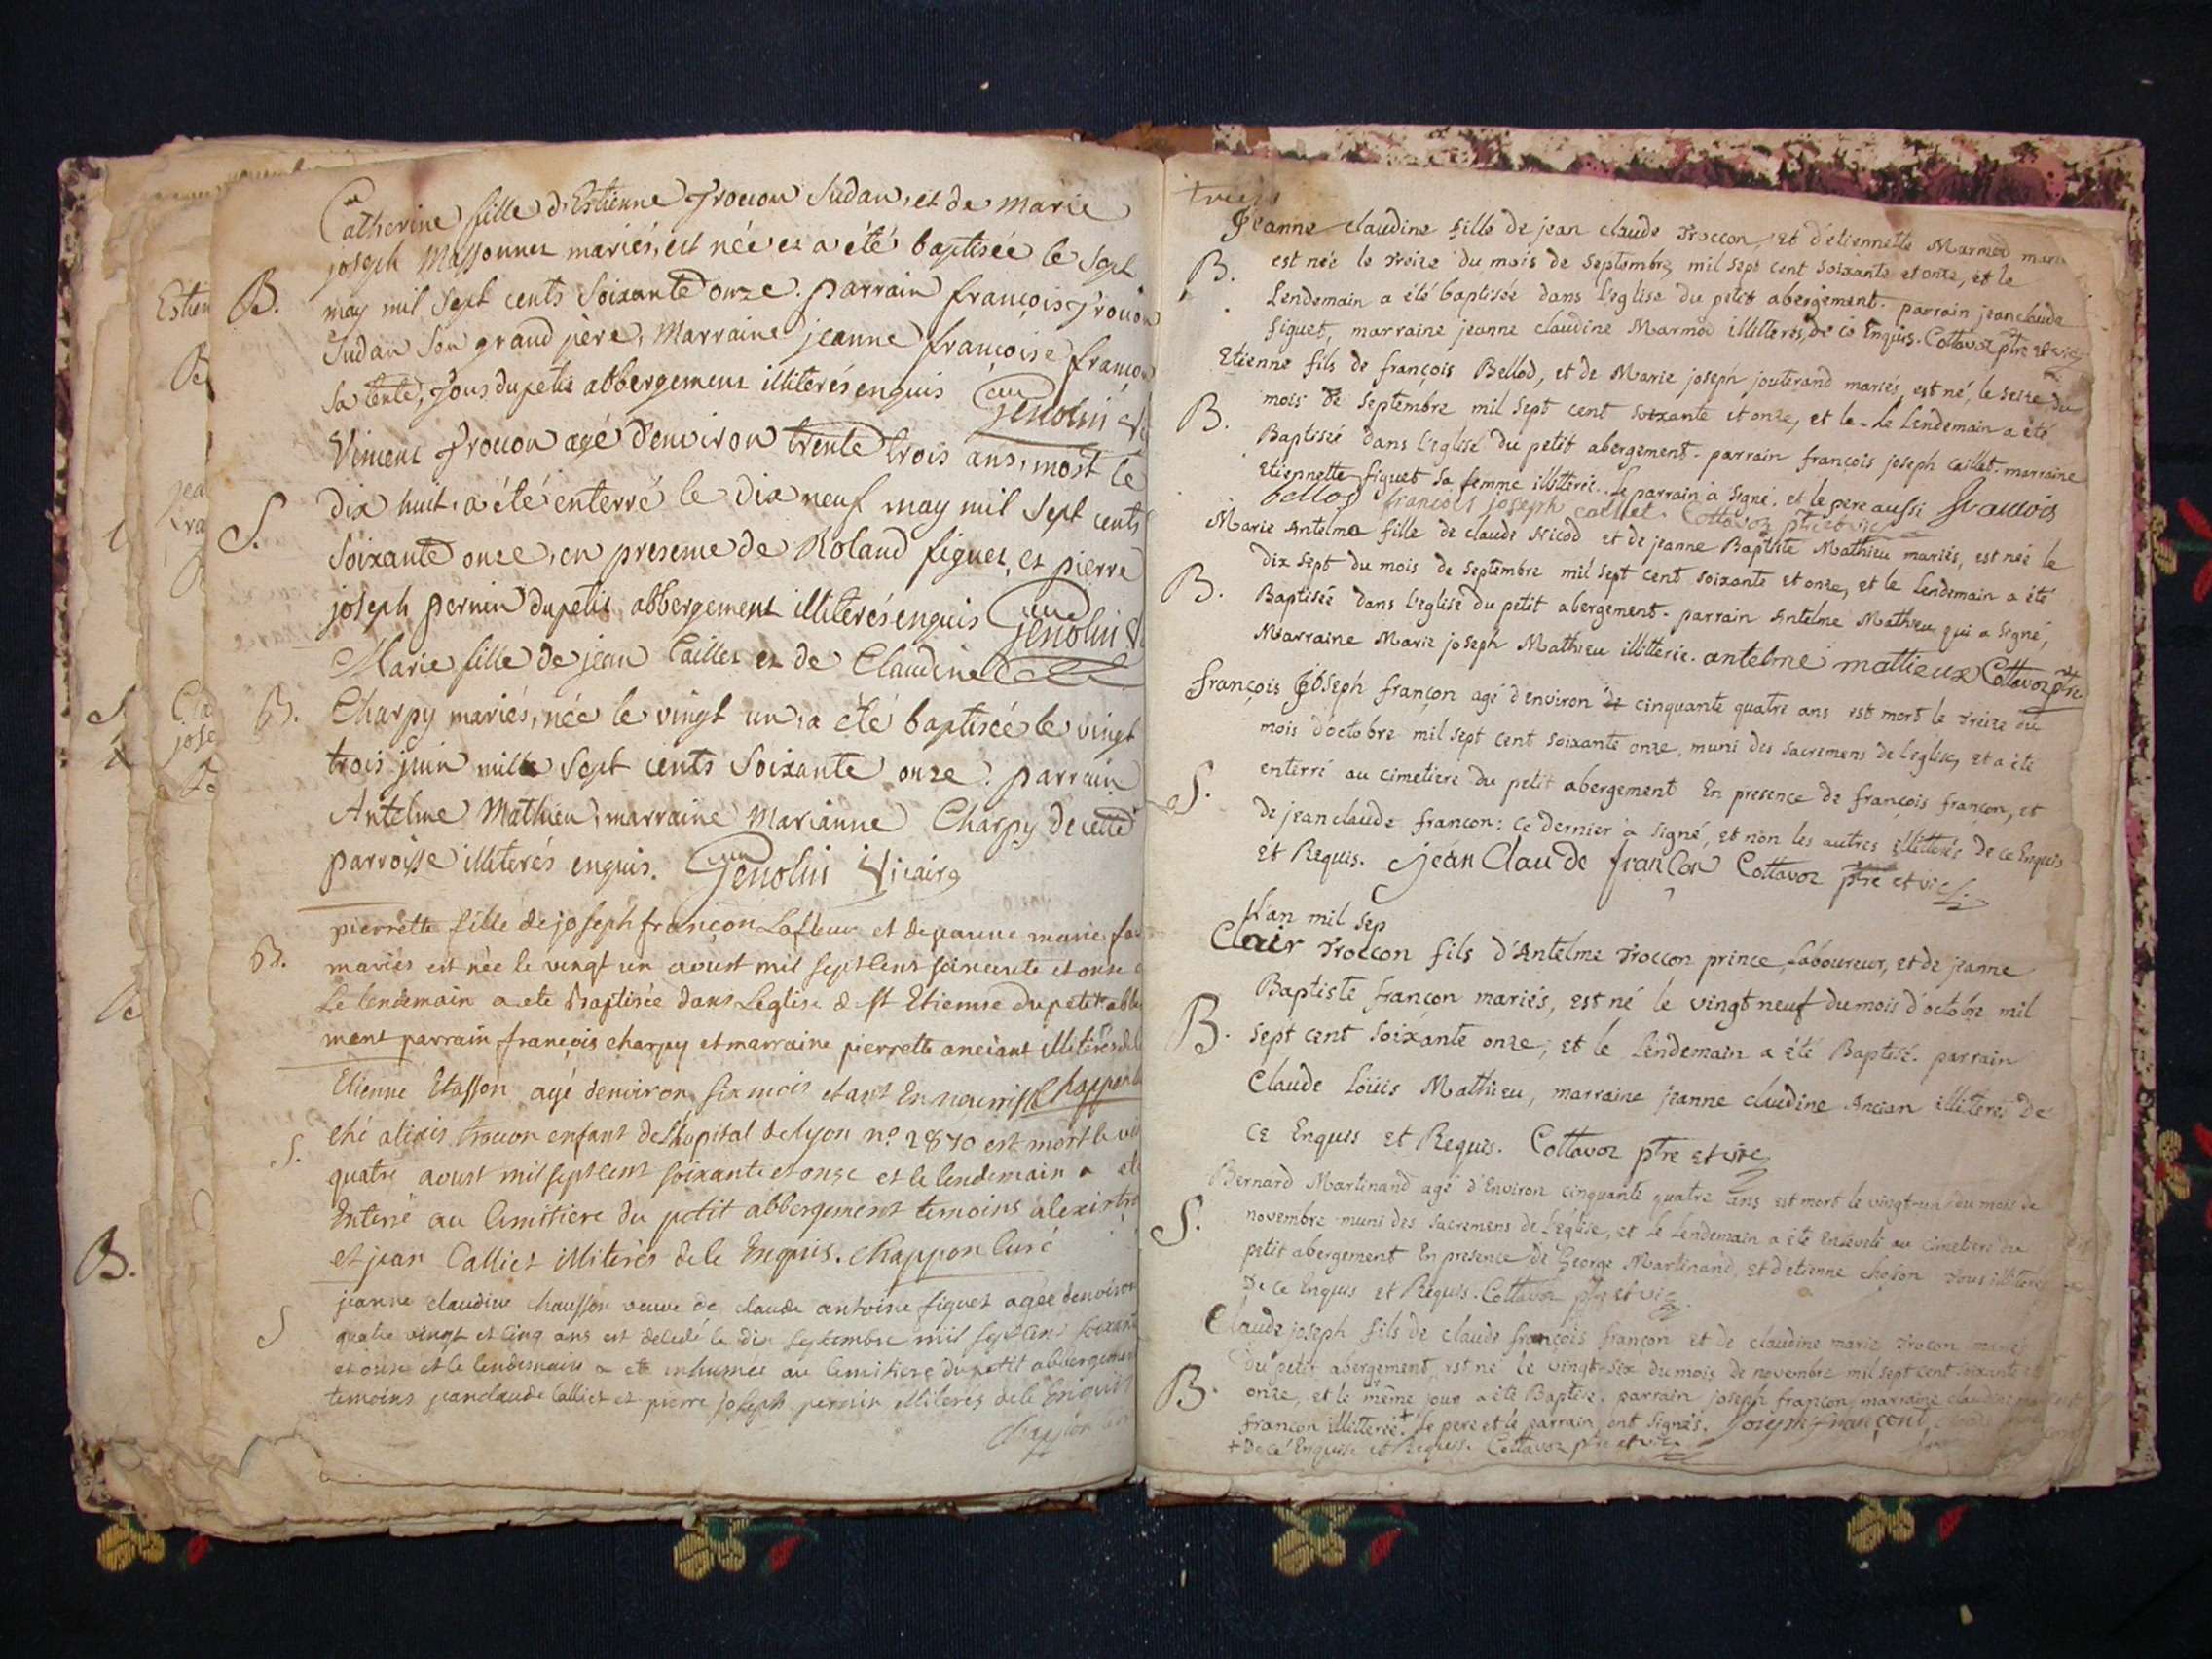 Catherine fille d'Estienne Troccon Sudan, et de marie
joseph Massonnet mariés, est née et a été baptisée le sept
B. may mil sept cents soixante onze. parrain françois Troccon
Sudan son grand père, Marraine jeanne françoise françon
sa tente, Tous du petit abbergement illiterés enquis Genolin
Vincent Troccon agé d'environ trente trois ans, mort le
S. dix huit, a été enterré le dix neuf may mil sept cents
soixante onze, en presence de Roland figuet, et pierre
joseph pernin du petit abbergement illiterés enquis Genolin
Marie fille de jean Caillet et de Claudine
B. Charpy mariés, née le vingt un, a été baptisée le vingt
trois juin mille sept cents soixante onze. parrain
Antelme Mathieu, marraine Marianne Charpy de cette
parroisse illiterés enquis. Genolin Vicaire
pierrette fille de joseph françon Lafleur et de jeanne marie
B. mariés est née le vingt un aoust mil sept cent soixante et onse
Le lendemain a ete Baptisée dans Leglise de st Etienne du petit abbe
ment parrain françois charpy et marraine pierrette anciant illiteres
Etienne Etasson agé denviron six mois etant En nourriss Chappon
ché alexis trocon enfant de Lhopital de lyon no. 2870 est mort le
S. quatre aoust mil sept cent soixante et onze et le lendemain a ete
Enterré au Cimitiere du petit abbergement temoins alexis
et jean Calliet illiterés de le Enquis. Chappon Curé
jeanne claudine chausson veuve de claude antoine figuet agée denviron
S quatre vingt et cinq ans est decedé le dix septembre mil sept cent soixante
et onse et le lendemain a ete inhumée au Cimitiere du petit abbergement
temoins jeanclaude Calliet et pierre joseph pernin illiterés de le Enquis
Chappon
Jeanne claudine fille de jean claude Troccon, et d'etiennette Marmod
B. est née le treize du mois de septembre mil sept cent soixante et onze, et le
Lendemain a été baptisée dans l'eglise du petit abergement. parrain jean claude
figuet, marraine jeanne claudine Marmod illitterés, de ce Enquis. Cottavoz ptre et vic
Etienne fils de françois Bellod, et de Marie joseph jouterand mariés, est né, le seize du
B. mois de septembre mil sept cent soixante et onze, et le Le Lendemain a été
Baptiseé dans l'eglise du petit abergement. parrain françois joseph caillet. marraine
etiennette figuet sa femme illitterée. Le parrain a signé. et le pere aussi francois
bellod francois joseph caillet. Cottavoz ptre et vic
Marie Antelme fille de claude Nicod et de jeanne Baptiste Mathieu mariés, est née le
dix sept du mois de septembre mil sept cent soixante et onze, et le Lendemain a été
B. Baptiseé dans l'eglise du petit abergement. parrain Antelme Mathieu qui a signé,
Marraine Marie joseph Mathieu illitterée. antelme mattieux Cottavoz ptre
françois joseph françon agé d'environ de cinquante quatre ans est mort le treize du
mois d'octobre mil sept cent soixante onze, muni des sacremens de L'eglise, et a été
S. enterré au cimetiere du petit abergement En presence de françois françon, et
de jean claude françon: ce dernier a signé, et non les autres illitterés de ce Enquis
et Requis. jean Claude francon Cottavoz ptre et vic
L'an mil sep
Clair Troccon fils d'Antelme Troccon prince, Laboureur, et de jeanne
Baptiste françon mariés, est né le vingt neuf du mois d'octobre mil
B. sept cent soixante onze; et le Lendemain a été Baptisé. parrain
Claude Loüis Mathieu, marraine jeanne claudine Ancian illiterés de
ce Enquis et Requis. Cottavoz ptre et vic
Bernard Martinand agé d'Environ cinquante quatre ans est mort le vingt-un du mois de
S. novembre muni des sacremens de L'eglise, et Le Lendemain a été Enseveli au cimetiere du
petit abergement En presence de George Martinand, et d'etienne choson tous illiterés
de ce Enquis et Requis. Cottavoz ptre et vic
Claude joseph fils de claude françois françon et de claudine marie Trocon mariés
du petit abergement, est né le vingt-six du mois de novembre mil sept cent soixante et
B. onze, et le même jour a été Baptisé. parrain joseph françon, marraine claudine
françon illitterée.+ Le pere et le parrain ont signés. Joseph françont
+ De ce Enquise et Requise. Cottavoz ptre et vic